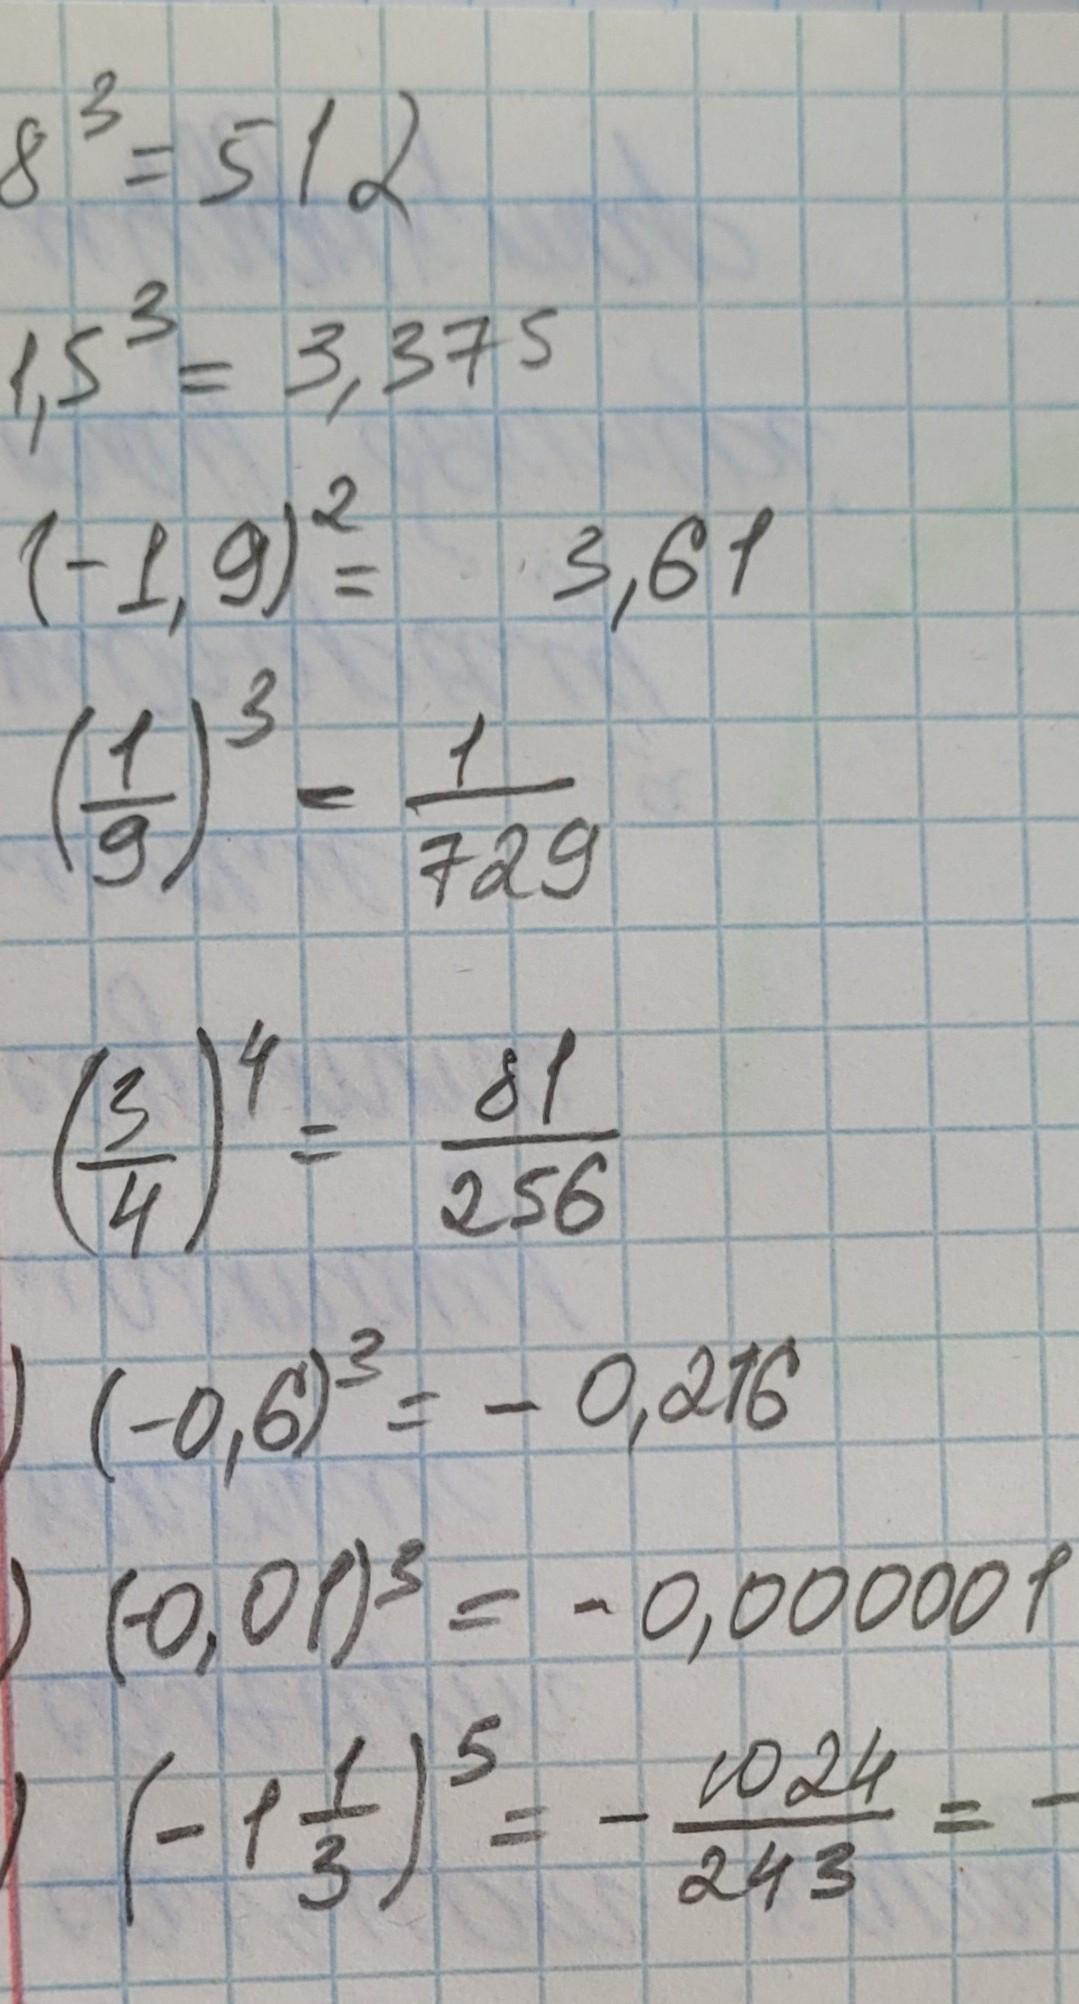 8³ = 512
1,5³ = 3,375
(-1,9)² = 3,61
(1/9)³ - 1/729
(3/4)⁴ = 81/256
) (-0,6)³ = - 0,216
) (-0,01)³ = -0,000001
) (-1 1/3)⁵ = - 1024/243 = -